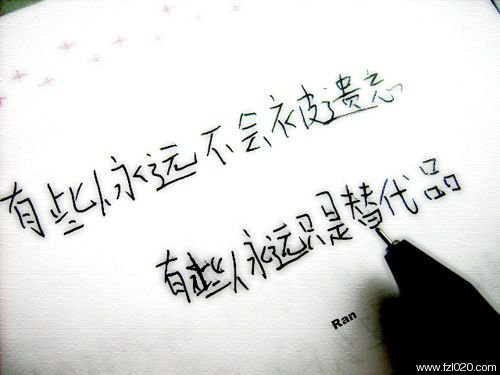 有些人永远不会被遗忘
有些人永远只是替代品
Ran
www.fzl020.com